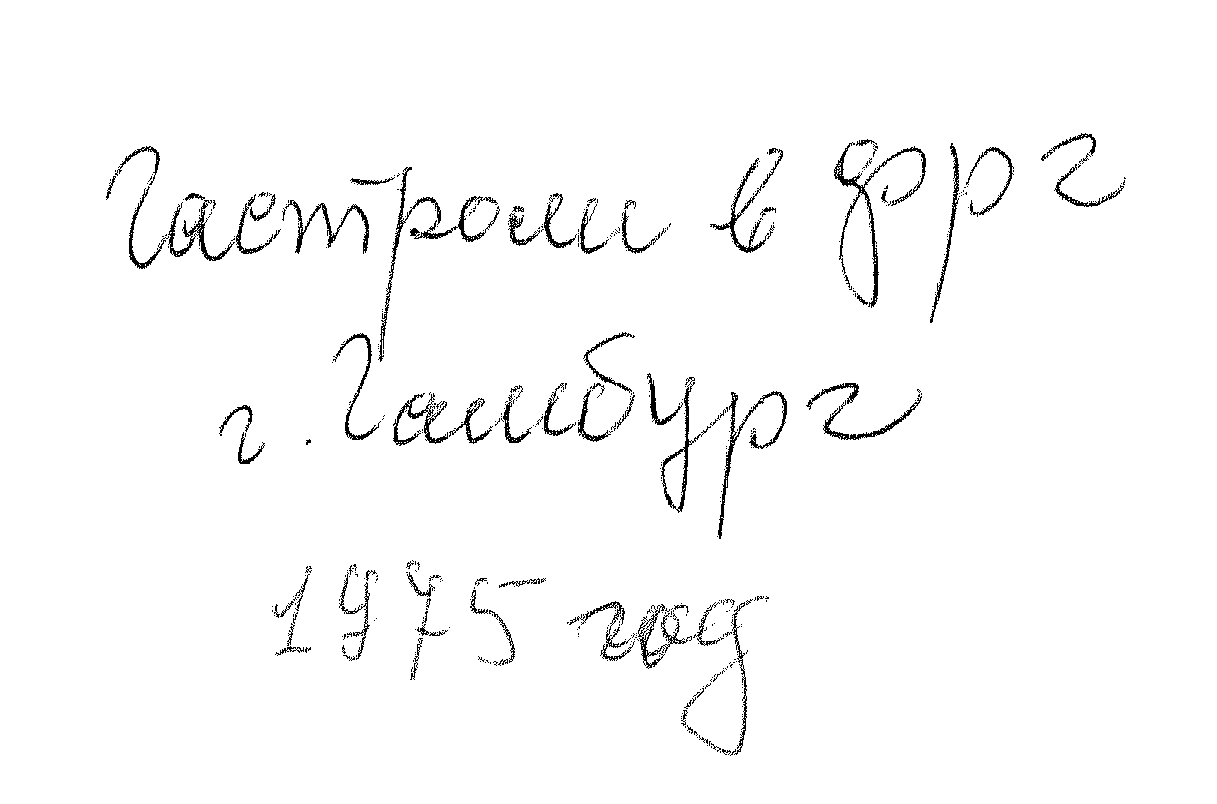 Гастроли в фрг
г. Гамбург
1975 год